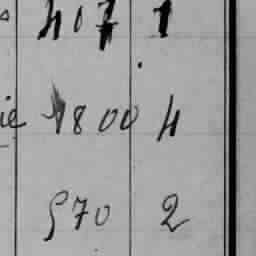 407 1
ie 1800 4
570 2